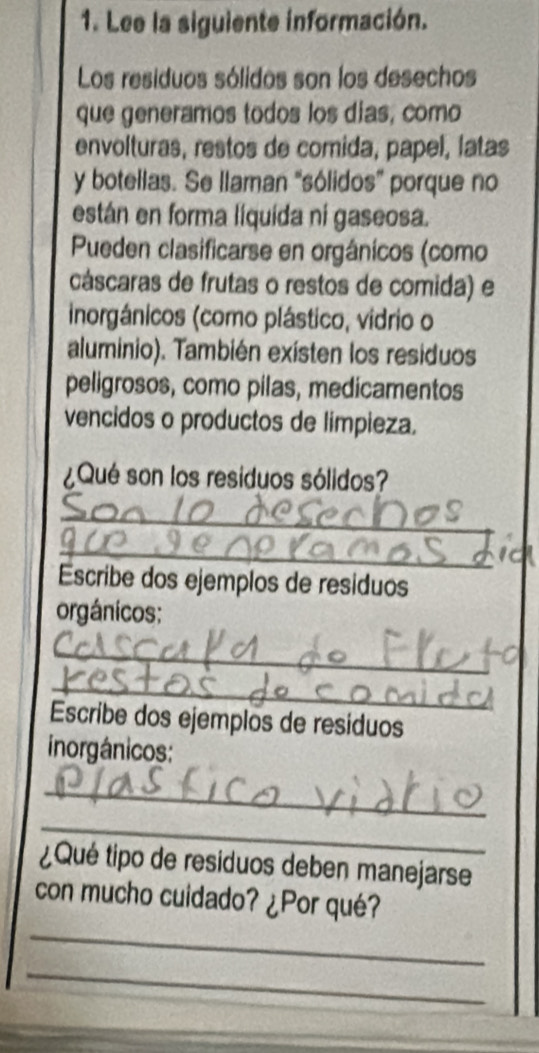 1. Lee la siguiente información.
Los residuos sólidos son los desechos
que generamos todos los días, como
envolturas, restos de comida, papel, latas
y botellas. Se llaman "sólidos" porque no
están en forma líquida ni gaseosa.
Pueden clasificarse en orgánicos (como
cáscaras de frutas o restos de comida) e
inorgánicos (como plástico, vidrio o
aluminio). También existen los residuos
peligrosos, como pilas, medicamentos
vencidos o productos de limpieza.
¿Qué son los residuos sólidos?
Son lo desechos
que generamos dia
Escribe dos ejemplos de residuos
orgánicos:
Cascara de Fruta
restos de comida
Escribe dos ejemplos de residuos
inorgánicos:
Plastico vidrio
¿Qué tipo de residuos deben manejarse
con mucho cuidado? ¿Por qué?